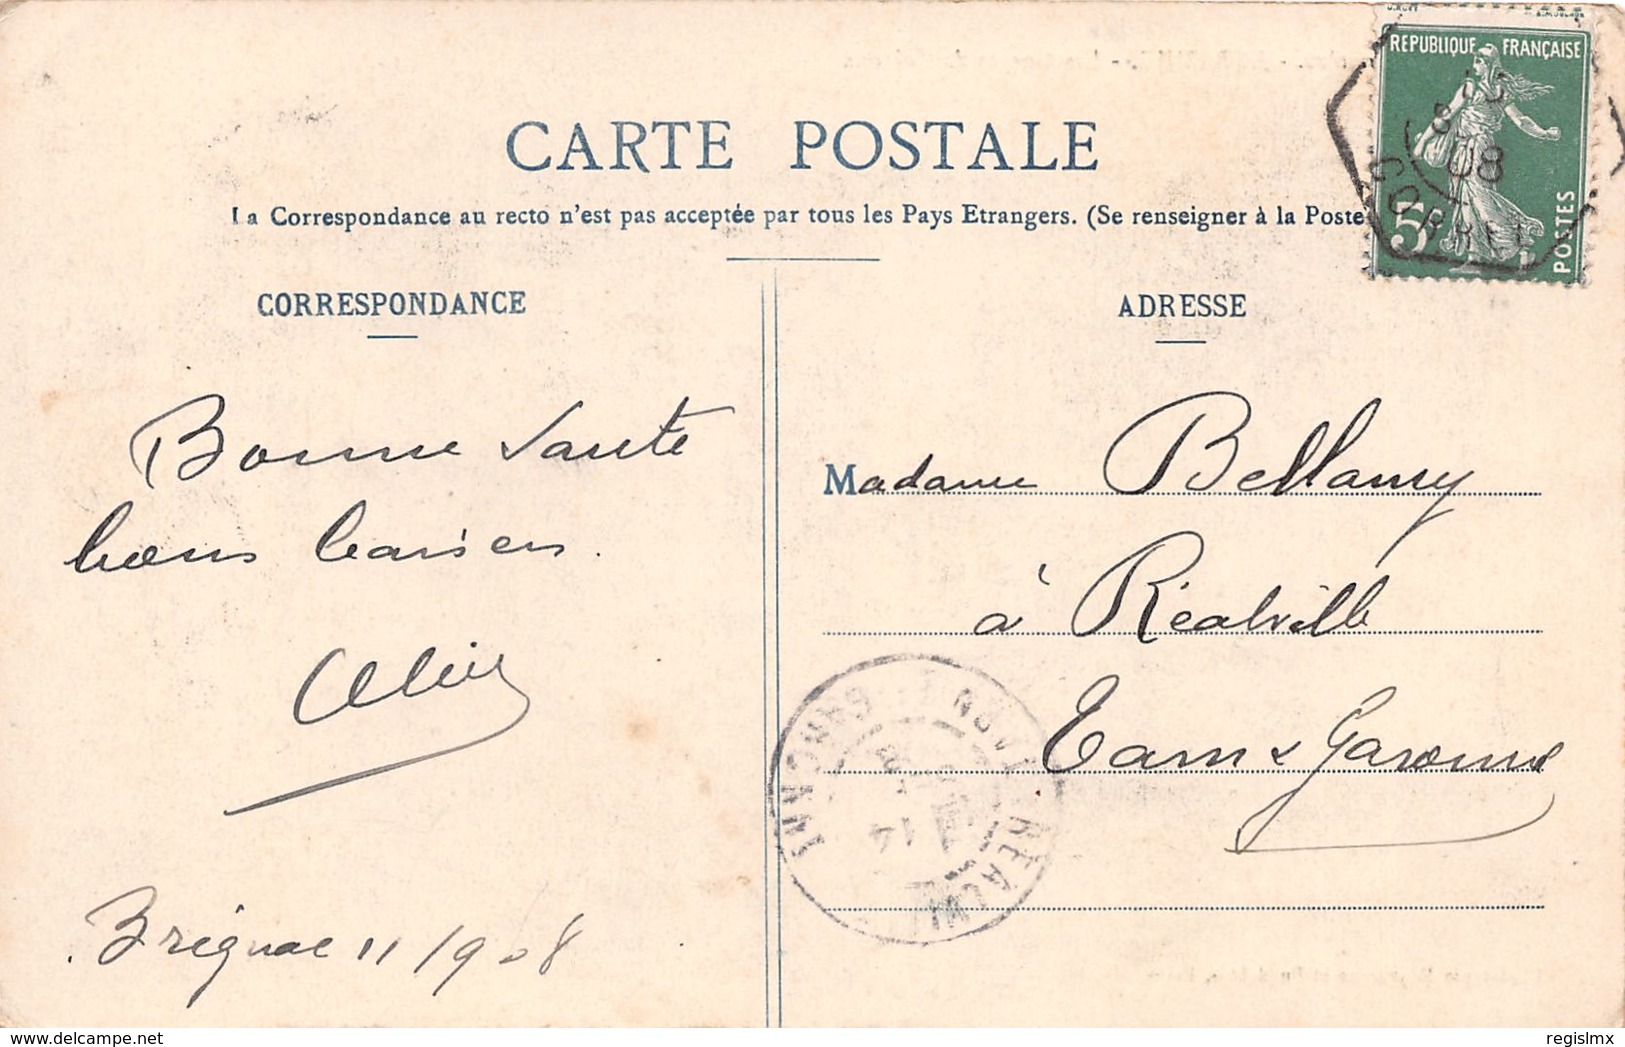 RÉPUBLIQUE FRANÇAISE
POSTES
5
08
CORRE
CARTE POSTALE
La Correspondance au recto n'est pas acceptée par tous les Pays Etrangers. (Se renseigner à la Poste
CORRESPONDANCE
Bonne Santé
bons baisers.
Brignac 11/1908
ADRESSE
Madame Bellamy
à Réalville
Tarn & Garonne
14
delcampe.net
regislmx